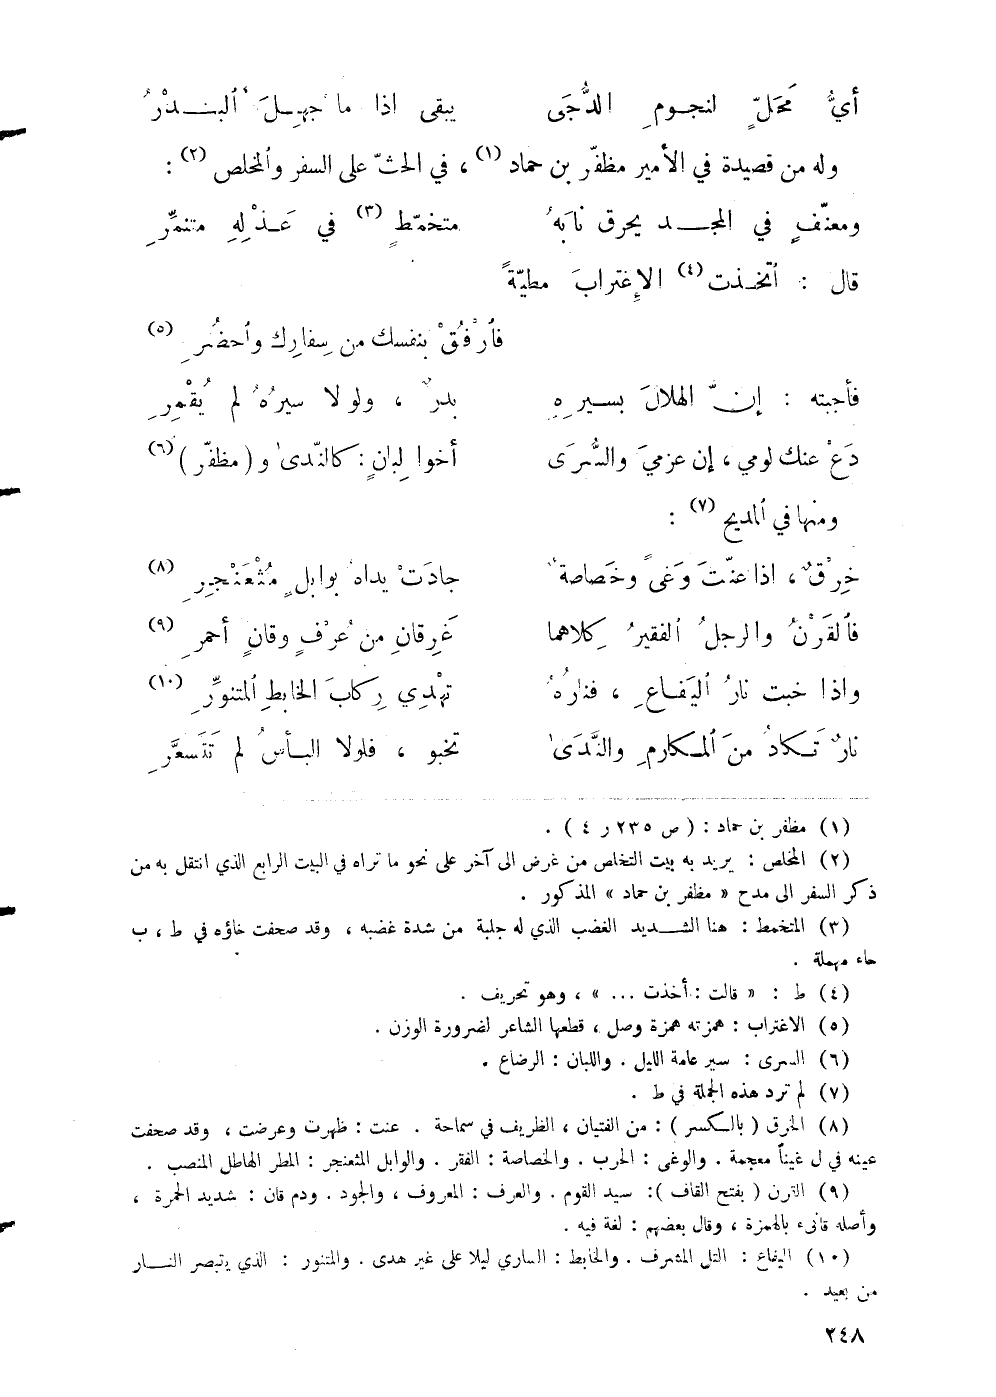 أيُّ مَحَلٍّ لنجومِ الدُّجَى يبقى اذا ما جهِلَ ٱلبدْرُ
وله من قصيدة في الأمير مظفّر بن حماد (١) ، في الحثّ على السفر وٱلمخلص (٢) :
ومعنّفٍ في المجد يحرق نابَهُ متخمّطٍ (٣) في عَذْلِهِ متنمِّرِ
قال : ٱتخذت (٤) الإغترابَ مطيّةً
فٱرْفُقْ بنفسك من سِفارِك وٱحضُرِ (٥)
فأجبته : إنّ الهلالَ بسيرِهِ بدرٌ ، ولولا سيرُهُ لم يُقْمِرِ
دَعْ عنك لومي ، إن عزميَ والسُّرَى أخوا لِبانٍ : كالنّدىٰ و ( مظفّر ) (٦)
ومنها في ٱلمديح (٧) :
خِرْقٌ ، اذا عنّتَ وَغىً وخَصاصةٌ جادَتْ يداهُ بوابلٍ مُثْعَنْجِرِ (٨)
فٱلقَرْنُ والرجلُ ٱلفقيرُ كِلاهما غَرِقانِ من عُرْفٍ وقانٍ أحمرِ (٩)
واذا خبت نارُ ٱليَفاعِ ، فنارُهُ تهْدي رِكابَ الخابطِ ٱلمتنوِّرِ (١٠)
نارٌ تَكادُ منَ ٱلمكارمِ والنَّدَىٰ تخبو ، فلولا البأسُ لم تَتَسعَّرِ
(١) مظفر بن حماد : ( ص ٢٣٥ ر ٤ ) .
(٢) المخلص : يريد به بيت التخلص من غرض الى آخر على نحو ما تراه في البيت الرابع الذي انتقل به من
ذكر السفر الى مدح « مظفر بن حماد » المذكور .
(٣) المتخمط : هنا الشديد الغضب الذي له جلبة من شدة غضبه ، وقد صحفت خاؤه في ط ، ب
حاء مهملة .
(٤) ط : « قالت : أخذت ... » ، وهو تحريف .
(٥) الاغتراب : همزته همزة وصل ، قطعها الشاعر لضرورة الوزن .
(٦) السرى : سير عامة الليل . واللبان : الرضاع .
(٧) لم ترد هذه الجملة في ط .
(٨) الخرق ( بالكسر ) : من الفتيان ، الظريف في سماحة . عنت : ظهرت وعرضت ، وقد صحفت
عينه في ل غيناً معجمة . والوغى : الحرب . والخصاصة : الفقر . والوابل المثعنجر : المطر الهاطل المنصب .
(٩) القرن ( بفتح القاف ) : سيد القوم . والعرف : المعروف ، والجود . ودم قان : شديد الحمرة ،
وأصله قانىء بالهمزة ، وقال بعضهم : لغة فيه .
(١٠) اليفاع : التل المشرف . والخابط : الساري ليلا على غير هدى . والمتنور : الذي يتبصر النار
من بعيد .
٢٤٨